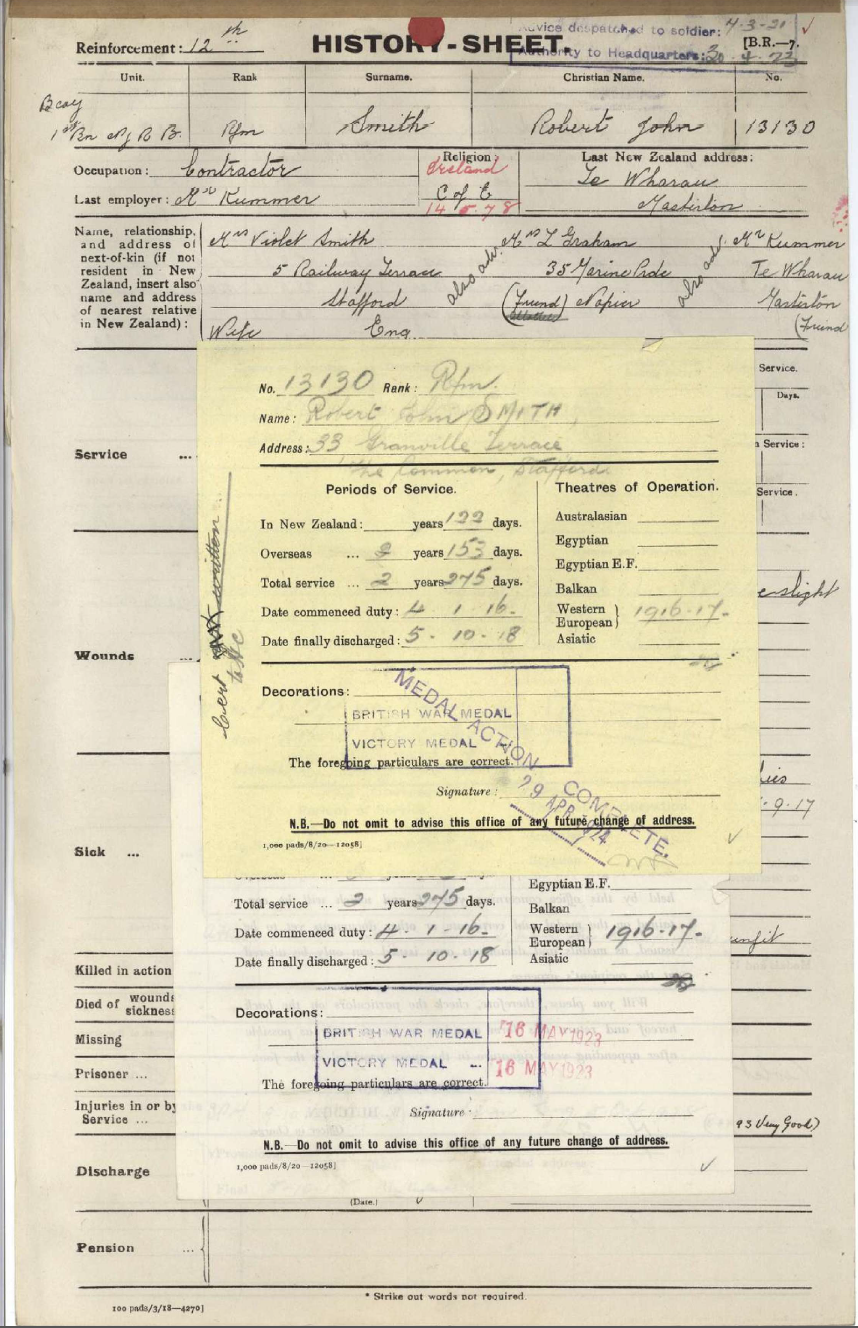 Advice despatched to soldier: 4-3-21
Reinforcement: 12th HISTORY-SHEET. Authority to Headquarters: 30-4-23 [B.R.—7.
Unit. Rank Surname. Christian Name. No.
B coy
1st Bn N Z R B. Rfm Smith Robert John 13130
Occupation: Contractor Religion: Last New Zealand address:
Ireland Te Wharau
Last employer: Mr Kummer C of E Masterton
14 5 78
Name, relationship, and address of next-of-kin (if not resident in New Zealand, insert also name and address of nearest relative in New Zealand):
Mrs Violet Smith
5 Railway Terrace
Stafford
Wife Eng
also adv.
Mrs L Graham
35 Marine Pde
(Friend) Napier
also adv.
Mr Kummer
Te Wharau
Masterton
(Friend
Service ... Service.
Days.
n Service:
Service.
Wounds
Sick ...
9.17
unfit
Killed in action
Died of wounds
sickness
Missing
Prisoner ...
Injuries in or by
Service ...
93 Very Good)
Discharge
(Date.)
Pension ...
* Strike out words not required.
100 pads/3/18—4270]
No. 13130 Rank: Rfm.
Name: Robert John SMITH
Address: 33 Granville Terrace
The Common, Stafford
Periods of Service. Theatres of Operation.
In New Zealand: years 122 days. Australasian
Overseas ... 2 years 153 days. Egyptian
Egyptian E.F.
Total service ... 2 years 275 days. Balkan
Date commenced duty: 4 1 16 Western European } 1916-17
Date finally discharged: 5-10-18 Asiatic
Cert written
Decorations:
BRITISH WAR MEDAL
VICTORY MEDAL
MEDAL ACTION COMPLETE.
29 APR 1924
The foregoing particulars are correct.
Signature:
N.B.—Do not omit to advise this office of any future change of address.
1,000 pads/8/20—12058]
Egyptian E.F.
Total service ... 2 years 275 days. Balkan
Date commenced duty: 4-1-16 Western European } 1916-17
Date finally discharged: 5-10-18 Asiatic
Decorations:
BRITISH WAR MEDAL 16 MAY 1923
VICTORY MEDAL ... 16 MAY 1923
The foregoing particulars are correct.
Signature:
N.B.—Do not omit to advise this office of any future change of address.
1,000 pads/8/20—12058]